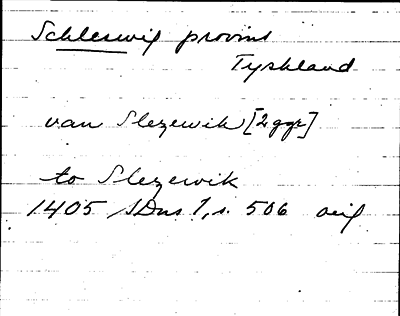 Schleswig provins
Tyskland
van Slezewik [2 ggr]
to Slezewik
1405 SDns 1, s. 506 avg